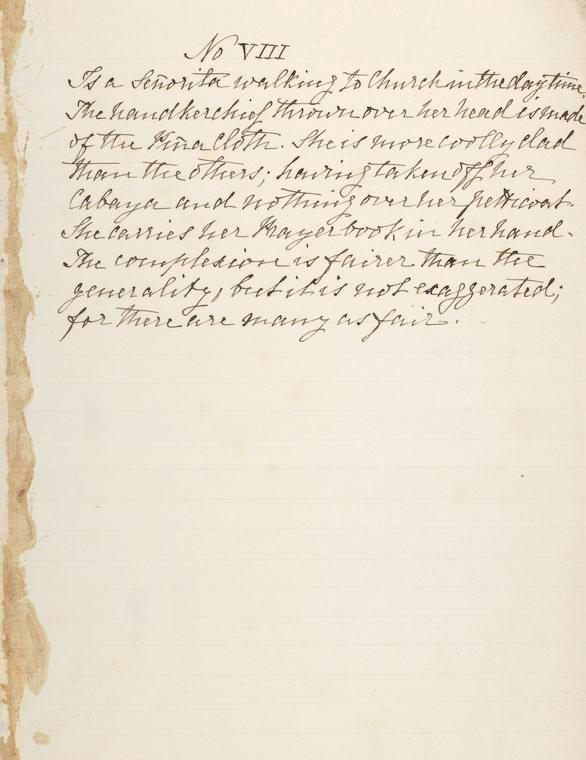 No VIII
Is a Señorita walking to Church in the daytime.
The handkerchief thrown over her head is made
of the Piña Cloth. She is more coolly clad
than the others; having taken off her
Cabaya and nothing over her petticoat.
She carries her Prayer book in her hand.
The complexion is fairer than the
generality, but it is not exaggerated;
for there are many as fair.